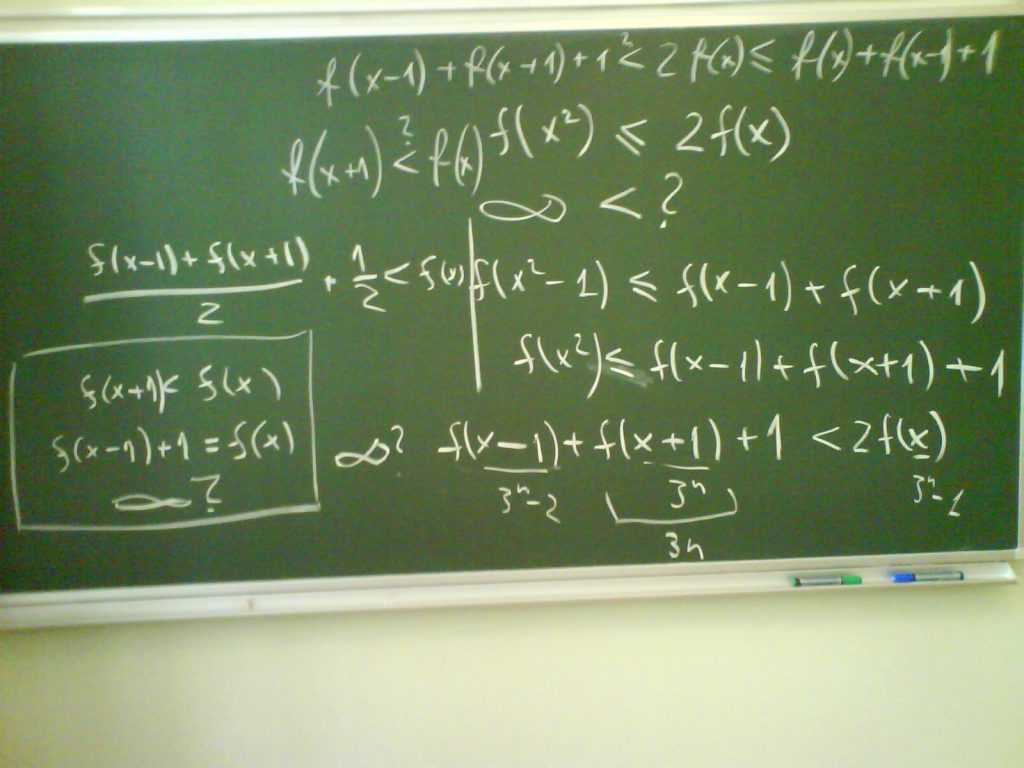 f(x-1) + f(x+1) + 1 ?< 2 f(x) ≤ f(x) + f(x-1) + 1
f(x+1) ?< f(x)
f(x²) ≤ 2f(x)
∞ < ?
(f(x-1) + f(x+1))/2 + 1/2 < f(x)
f(x²-1) ≤ f(x-1) + f(x+1)
f(x²) ≤ f(x-1) + f(x+1) + 1
f(x+1) < f(x)
f(x-1) + 1 = f(x)
∞ ?
∞? f(x-1) + f(x+1) + 1 < 2f(x)
3ⁿ-2 3ⁿ 3ⁿ-1
3n